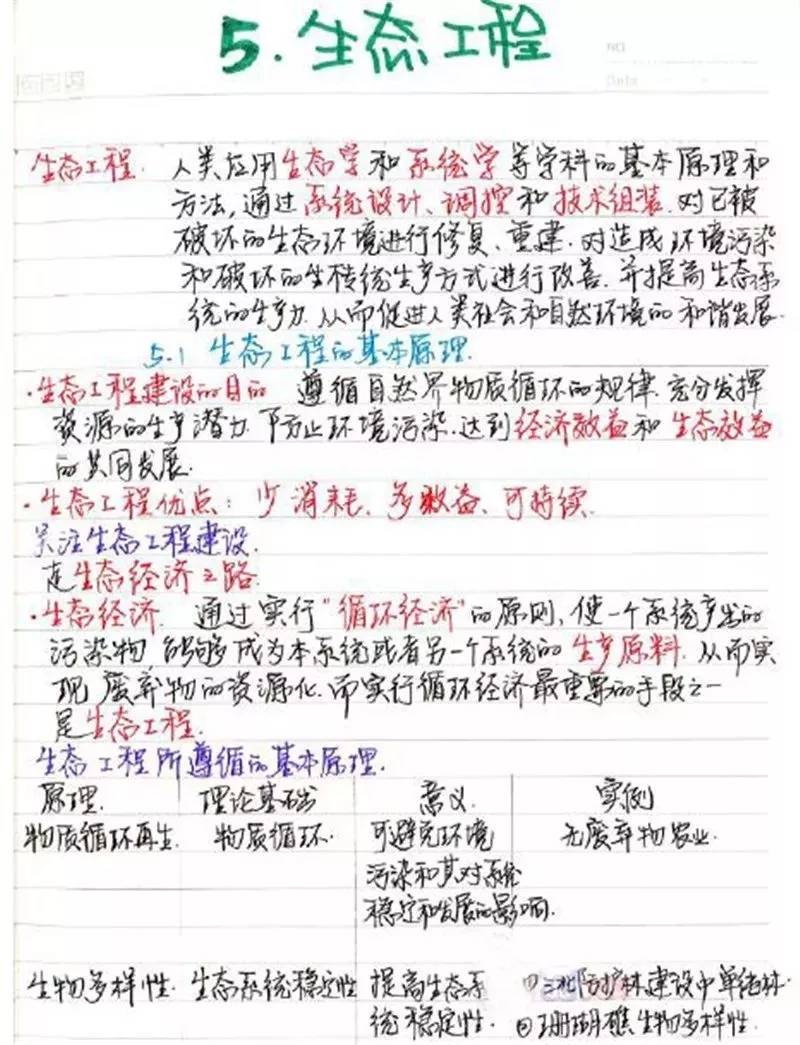 5.生态工程
NO.
Date
生态工程. 人类应用生态学和系统学等学科的基本原理和
方法,通过系统设计、调控和技术组装.对已被
破坏的生态环境进行修复、重建.对造成环境污染
和破坏的生传统生产方式进行改善.并提高生态系
统的生产力.从而促进人类社会和自然环境的和谐发展.
5.1 生态工程的基本原理.
·生态工程建设的目的 遵循自然界物质循环的规律.充分发挥
资源的生产潜力 防止环境污染.达到经济效益和生态效益
的共同发展.
·生态工程优点:少消耗、多效益、可持续.
关注生态工程建设.
走生态经济之路.
·生态经济. 通过实行"循环经济"的原则,使一个系统产出的
污染物 能够成为本系统或者另一个系统的生产原料.从而实
现废弃物的资源化.而实行循环经济最重要的手段之一
是生态工程.
生态工程所遵循的基本原理.
原理. 理论基础 意义. 实例
物质循环再生. 物质循环. 可避免环境 无废弃物农业.
污染和其对系统
稳定和发展的影响.
生物多样性. 生态系统稳定性 提高生态系 ①三北防护林建设中单纯林
统稳定性. ②珊瑚礁生物多样性.